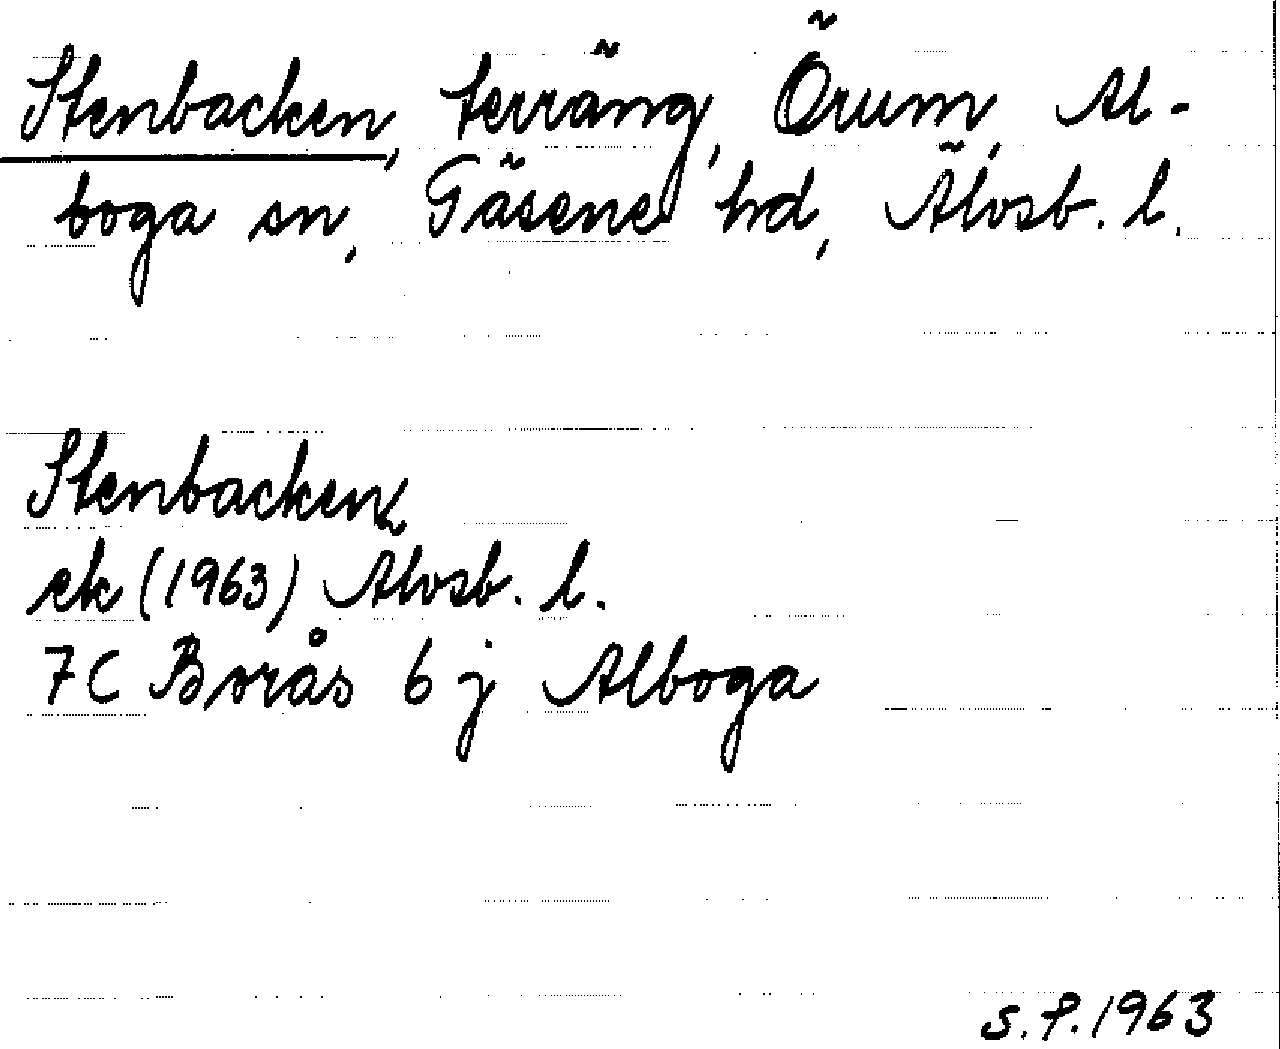 Stenbacken, terräng, Örum, Al-
boga sn, Gäsene hd, Älvsb. l.
Stenbacken
ek (1963) Älvsb. l.
7C Borås 6 j Alboga
S.F. 1963